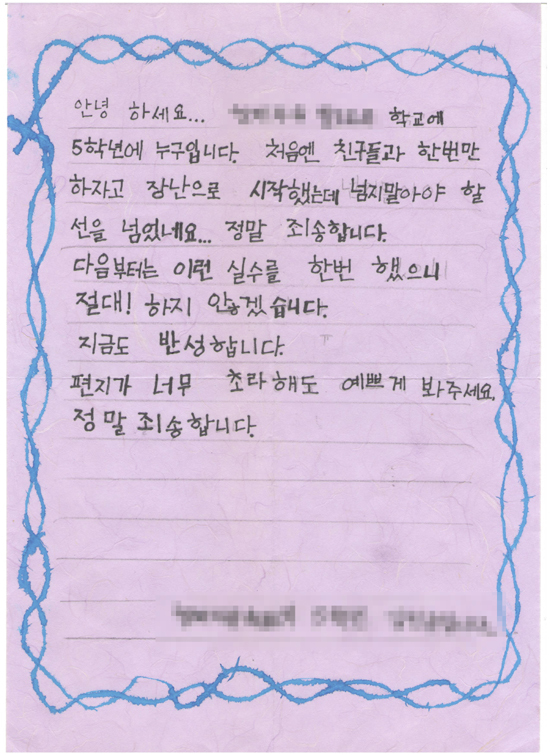 안녕 하세요... 학교에
5학년에 누구입니다. 처음엔 친구들과 한번만
하자고 장난으로 시작했는데 넘지말아야 할
선을 넘었네요... 정말 죄송합니다.
다음부터는 이런 실수를 한번 했으니
절대! 하지 않겠습니다.
지금도 반성합니다.
편지가 너무 초라해도 예쁘게 봐주세요.
정말 죄송합니다.